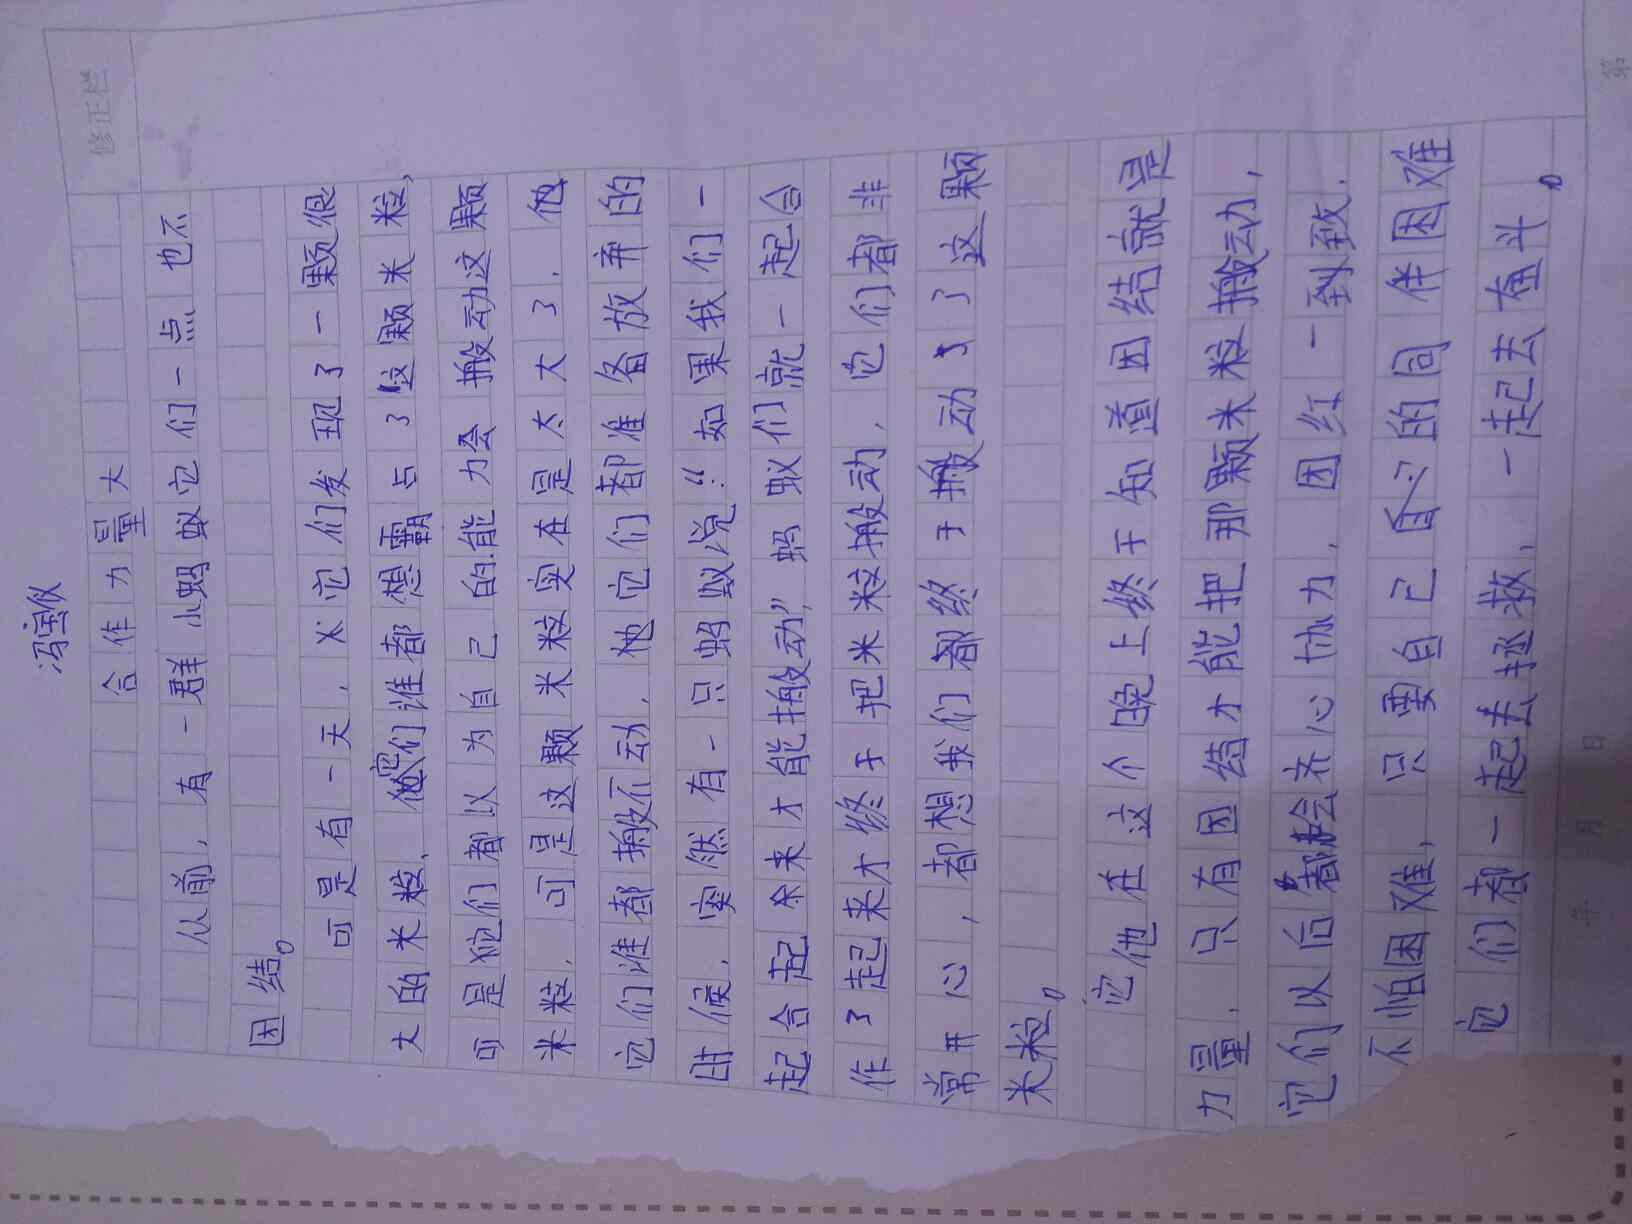 冯宝仪
修正栏
合作力量大
从前，有一群小蚂蚁它们一点也不
团结。
可是有一天，它们发现了一颗很
大的米粒，它们谁都想霸占了这颗米粒，
可是它们都以为自己的能力会搬动这颗
米粒，可是这颗米粒实在是太大了，他
它们谁都搬不动，他它们都准备放弃的
时候，突然有一只蚂蚁说：“如果我们一
起合起来才能搬动”蚂蚁们就一起合
作了起来才终于把米粒搬动，它们都非
常开心，都想我们都终于搬动了这颗
米粒。
它他在这个晚上终于知道团结就是
力量，只有团结才能把那颗米粒搬动，
它们以后都会齐心协力，团红一到致，
不怕困难，只要自己自己的同伴困难
它们都一起去拯救，一起去奋斗。
年 月 日
第